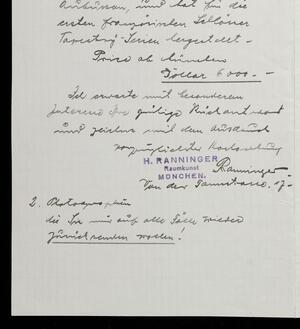 Aubusson, und hat für die
ersten französischen Schlösser
Tapestry-Serien hergestellt.-
Preis ab München
Dollar 6000.-
Ich erwarte mit besonderem
Interesse Ihre gütige Rückantwort
und zeichne mit dem Ausdruck
vorzüglichster Hochachtung
H. RANNINGER
Raumkunst
MÜNCHEN.
Ranninger
Von der Tannstrasse 17-
2. Photographien
die Sie mir auf alle Fälle wieder
zurücksenden wollen!